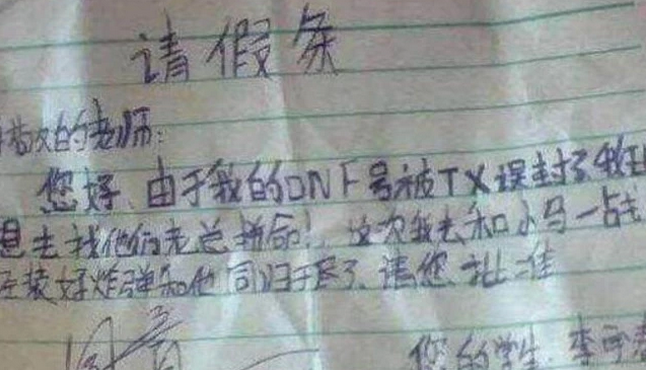 请假条
敬的老师:
您好、由于我的DNF号被TX误封了我现
想去找他们老总拼命!、这次我去和小马一战
装好炸弹和他同归于尽了、请您批准
同意
您的学生:李